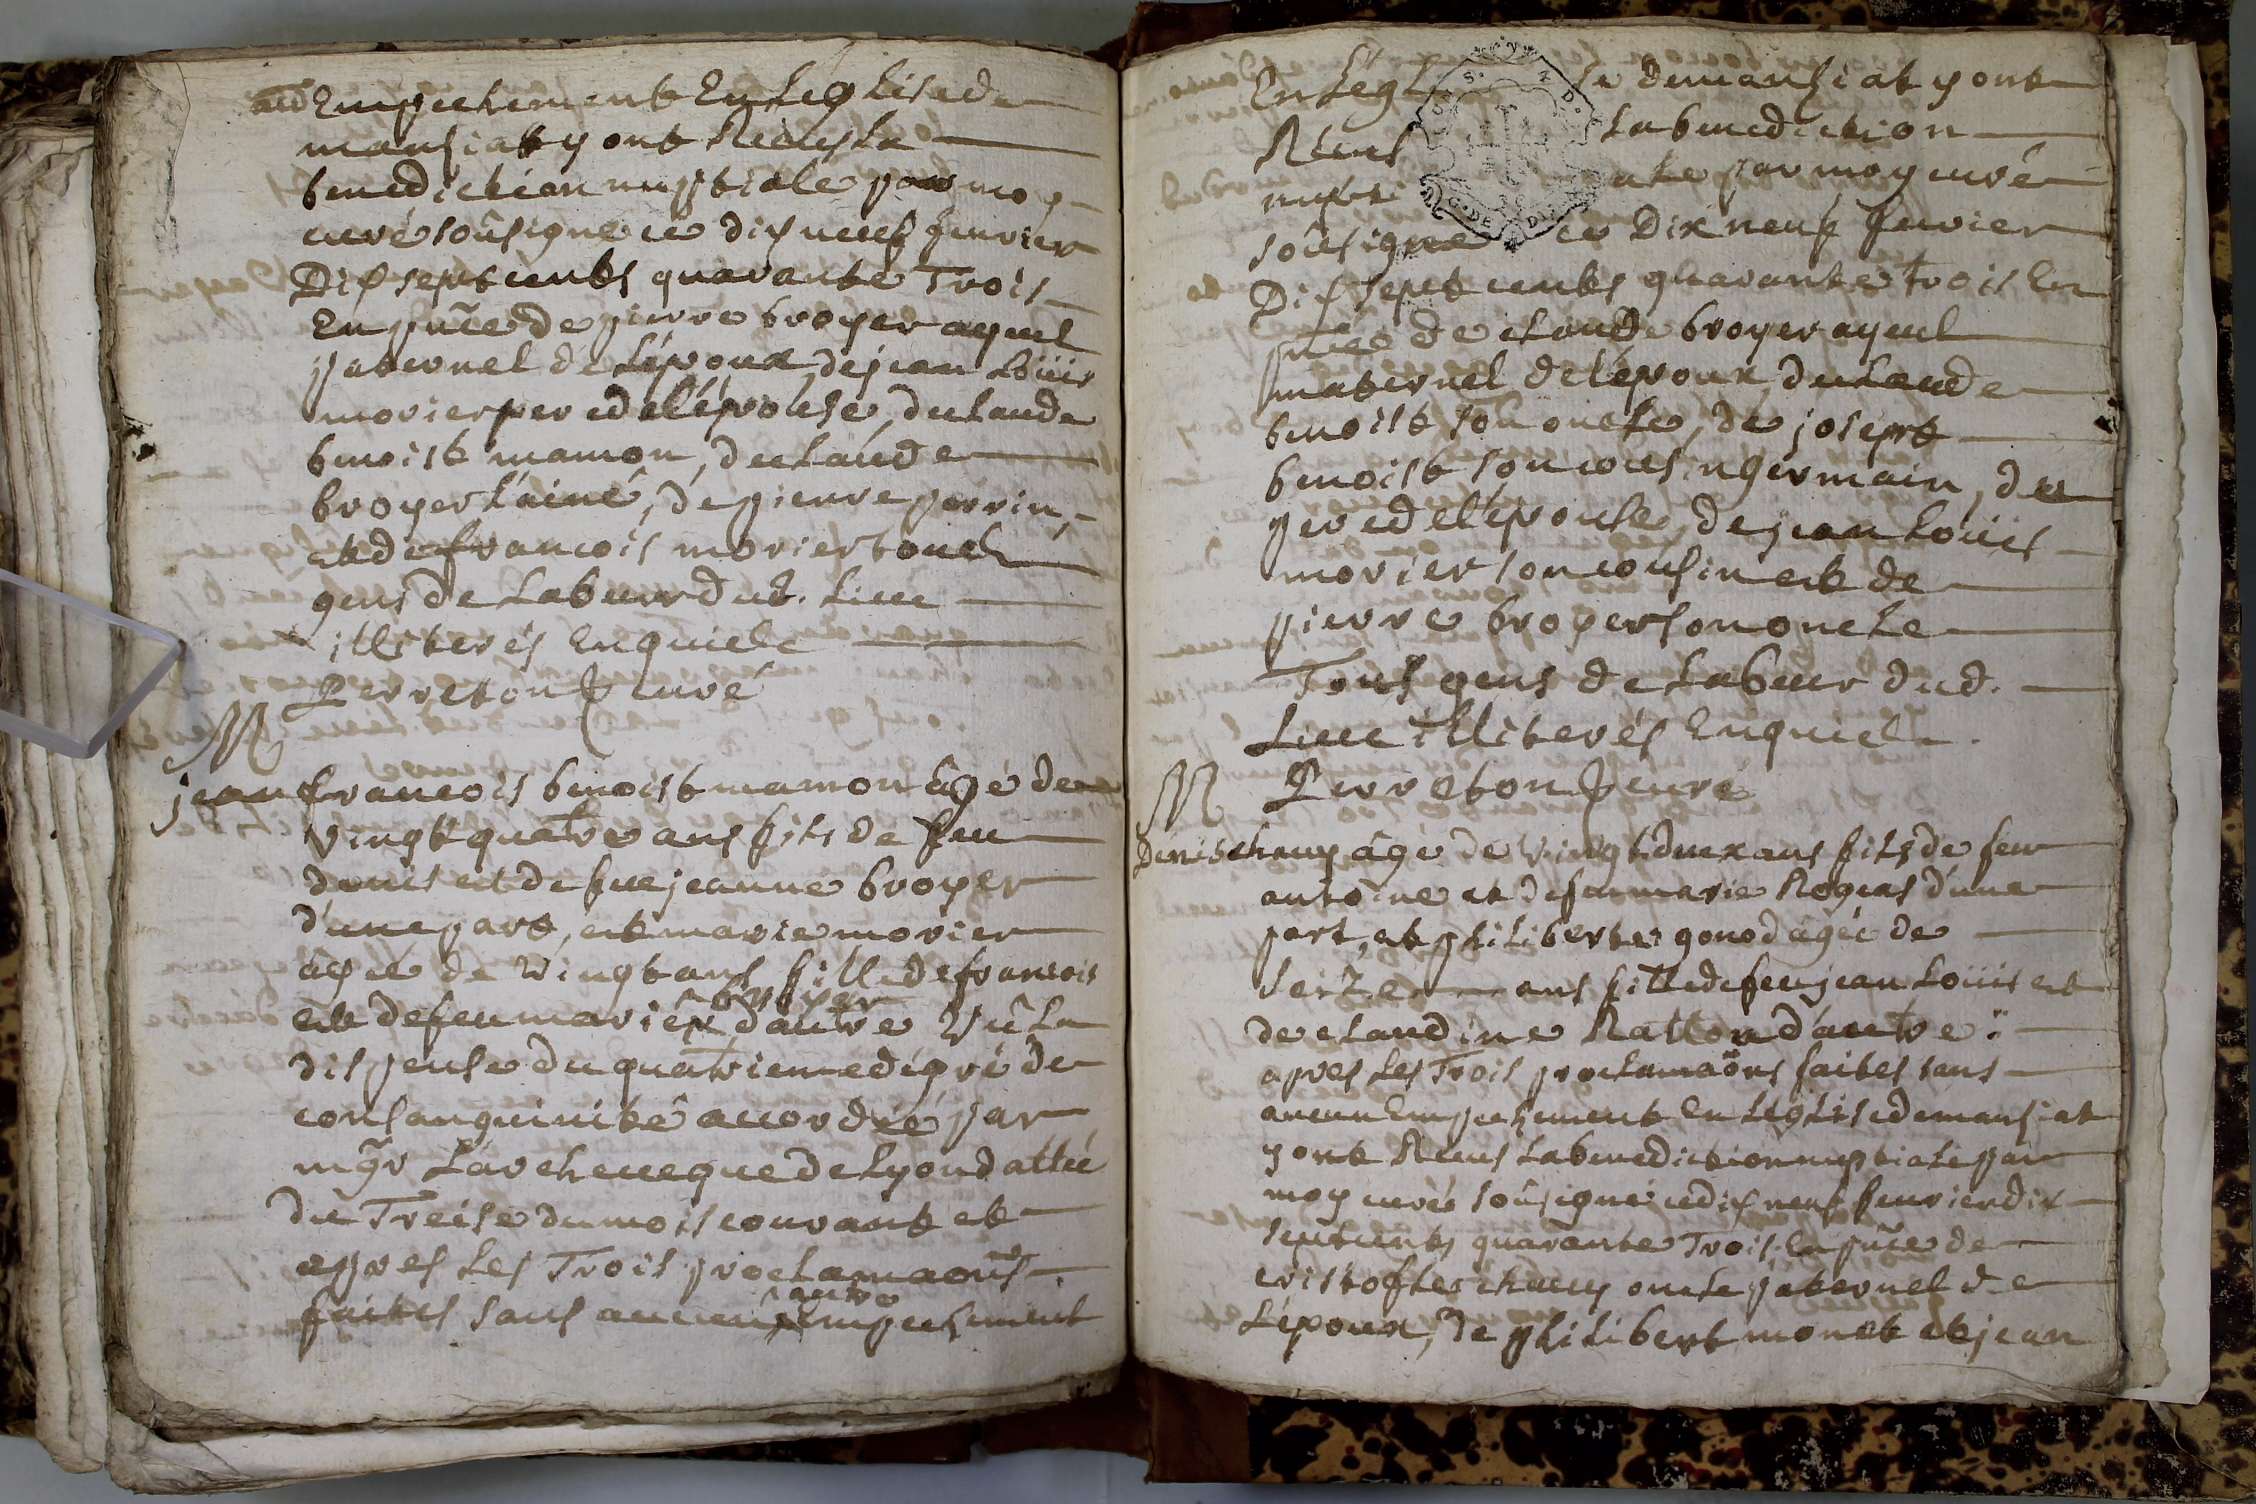 aud Empechement En Leglise de
mansiat y ont Receus La
benediction nuptiale par moy
curé soûsigné ce dix neuf feuvrier
Dix sept cents quarante Trois
En pnce de pierre broyer ayeul
paternel de L'époux, de jean Loüis
morier pere de l'épouse, de claude
benoist mamon, de claude
broyer L'ainé, de pierre perrin,
et de francois morier touch
gens de Labeur dud. Lieu
illiterés Enquielc
Perreton J curé
M
jean francois benoist mamon âgé de
vingt quatre ans fils de feu
denis et de fue jeanne broyer
d'une part, et marie morier
agée de vingt ans fille de francois
broyer
et de feu marie d'autre Vû La
dispense du quatrieme degré de
consanguinité accordée par
mgr L'archeveque de Lyon dattée
du Treise du mois courant et
apres Les Trois proclamaons
autre
faites sans aucun empechement
En L'egl se de mansiat y ont
Receus La benediction
nupti ale par moy curé
soûsigné ce Dix neuf feuvrier
Dix sept cents quarante trois En
pnce de claude broyer ayeul
maternel de l'époux, de claude
benoist son oncle, de josept
benoist son cousin germain, du
pere de l'épouse, de jean Loüis
morier son cousin et de
pierre broyer son oncle
Tous gens de Labeur dud.
Lieu illiterés Enquielc.
Perreton J curé
M
Denis chaup âgé de vingt deux ans fils de feu
antoine et de feu marie Rogeas d'une
part, et philiberte gonod âgée de
seize ans fille de feu jean Loüis et
de claudine Ratton d'autre
apres Les Trois proclamaons faites sans
aucun Empechement en Léglise de mansiat
y ont Receus La benediction nuptiale par
moy curé soûsigné ce dix neuf feuvrier dix
sept cents quarante Trois, En pnce de
cristofle chaup oncle paternel de
L'époux, de philibert monet et jean